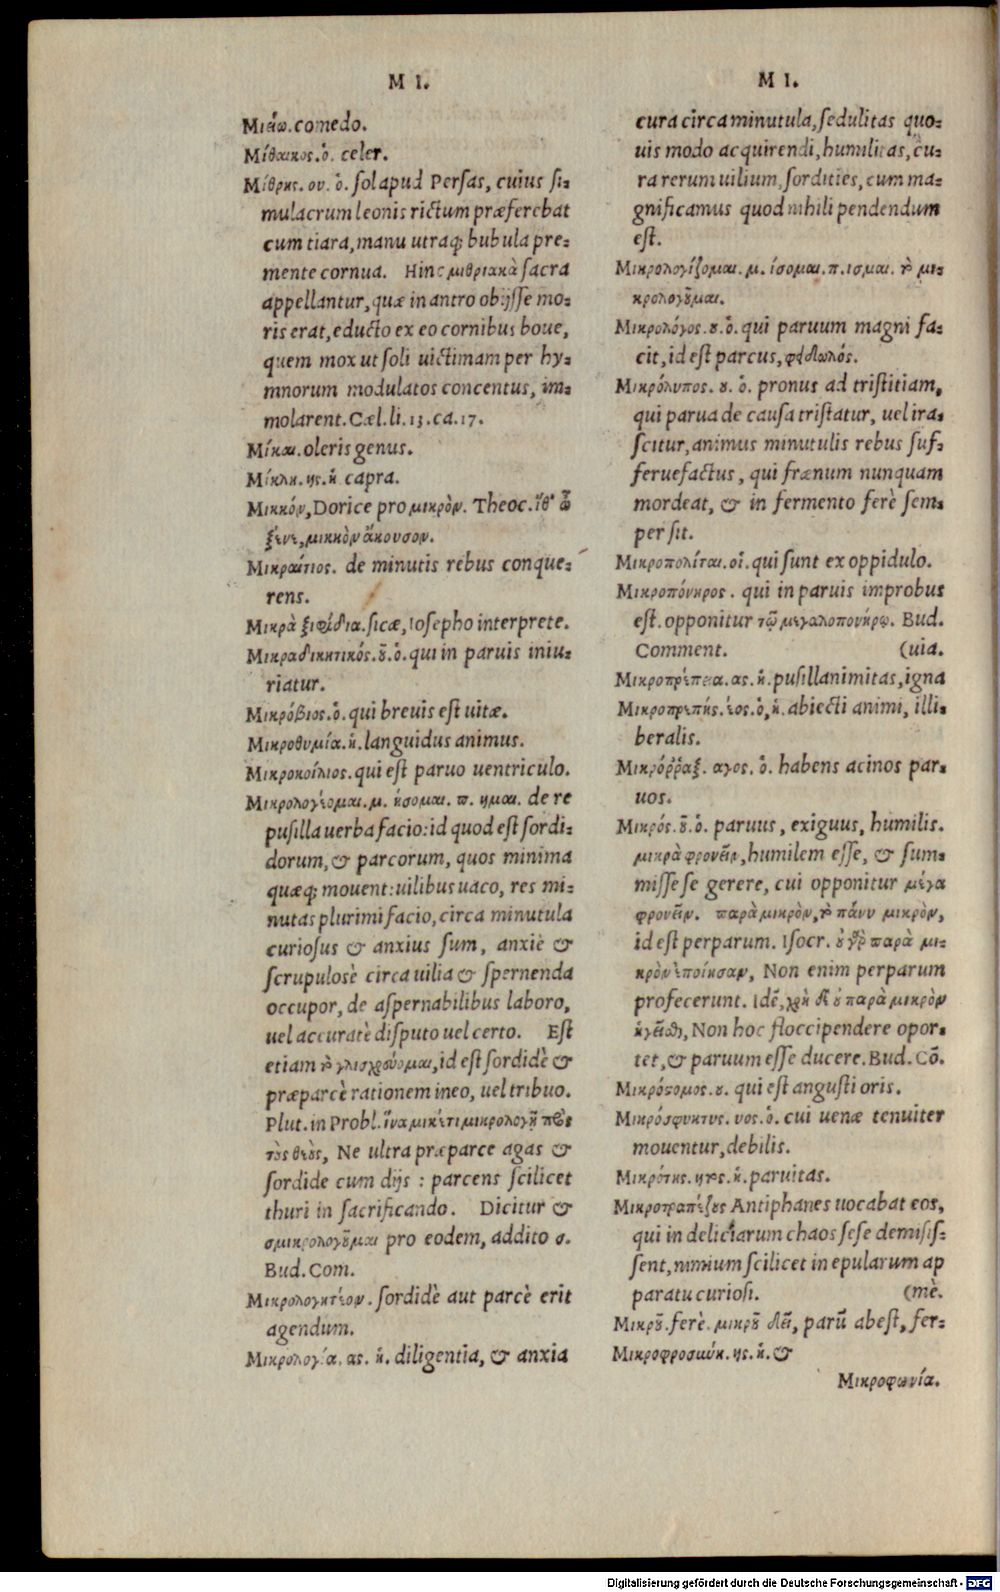 M I.
Μιάω. comedo.
Μίθαικος. ὁ. celer.
Μίθρης. ου. ὁ. ſol apud Perſas, cuius ſi-
mulacrum leonis rictum præferebat
cum tiara, manu utraq; bubula pre-
mente cornua. Hinc μιθριακὰ ſacra
appellantur, quæ in antro obijſſe mo-
ris erat, educto ex eo cornibus boue,
quem mox ut ſoli uictimam per hy-
mnorum modulatos concentus, im-
molarent. Cæl. li. 13. ca. 17.
Μίκαι. oleris genus.
Μίκλη. ης. ἡ. capra.
Μικκόν, Dorice pro μικρὸν. Theoc. ἴθ' ὦ
ξένε, μικκὸν ἄκουσον.
Μικραίτιος. de minutis rebus conque-
rens.
Μικρὰ ξιφίδια. ſicæ, Ioſepho interprete.
Μικραδικητικός. οῦ. ὁ. qui in paruis iniu-
riatur.
Μικρόβιος. ὁ. qui breuis eſt uitæ.
Μικροθυμία. ἡ. languidus animus.
Μικροκοίλιος. qui eſt paruo uentriculo.
Μικρολογέομαι. μ. ήσομαι. π. ημαι. de re
puſilla uerba facio: id quod eſt ſordi-
dorum, & parcorum, quos minima
quæq; mouent: uilibus uaco, res mi-
nutas plurimi facio, circa minutula
curioſus & anxius ſum, anxiè &
ſcrupuloſè circa uilia & ſpernenda
occupor, de aſpernabilibus laboro,
uel accuratè diſputo uel certo. Eſt
etiam τὸ γλισχρεύομαι, id eſt ſordidè &
præparcè rationem ineo, uel tribuo.
Plut. in Probl. ἵνα μηκέτι μικρολογῇ πρὸς
τοὺς θεοὺς, Ne ultra præparce agas &
ſordide cum dijs : parcens ſcilicet
thuri in ſacrificando. Dicitur &
σμικρολογοῦμαι pro eodem, addito σ.
Bud. Com.
Μικρολογητέον. ſordidè aut parcè erit
agendum.
Μικρολογία. ας. ἡ. diligentia, & anxia
M I.
cura circa minutula, ſedulitas quo-
uis modo acquirendi, humilitas, cu-
ra rerum uilium, ſordities, cum ma-
gnificamus quod nihili pendendum
eſt.
Μικρολογίζομαι. μ. ίσομαι. π. ισμαι. τὸ μι-
κρολογοῦμαι.
Μικρολόγος. ου. ὁ. qui paruum magni fa-
cit, id eſt parcus, φειδωλός.
Μικρόλυπος. ου. ὁ. pronus ad triſtitiam,
qui parua de cauſa triſtatur, uel ira-
ſcitur, animus minutulis rebus ſuf-
feruefactus, qui frænum nunquam
mordeat, & in fermento ferè ſem-
per ſit.
Μικροπολίται. οἱ. qui ſunt ex oppidulo.
Μικροπόνηρος. qui in paruis improbus
eſt. opponitur τῷ μεγαλοπονήρῳ. Bud.
Comment. (uia.
Μικροπρέπεια. ας. ἡ. puſillanimitas, igna
Μικροπρεπής. έος. ὁ, ἡ. abiecti animi, illi-
beralis.
Μικρόρραξ. αγος. ὁ. habens acinos par-
uos.
Μικρός. οῦ. ὁ. paruus, exiguus, humilis.
μικρὰ φρονεῖν, humilem eſſe, & ſum-
miſſe ſe gerere, cui opponitur μέγα
φρονεῖν. παρὰ μικρὸν, τὸ πάνυ μικρὸν,
id eſt perparum. Iſocr. οὐ γὰρ παρὰ μι-
κρὸν ἐποίησαν, Non enim perparum
profecerunt. Idē, χρὴ δὲ οὐ παρὰ μικρὸν
ἡγεῖσθαι, Non hoc floccipendere opor-
tet, & paruum eſſe ducere. Bud. Cō.
Μικρόστομος. ου. qui eſt anguſti oris.
Μικρόσφυκτυς. υος. ὁ. cui uenæ tenuiter
mouentur, debilis.
Μικρότης. ητος. ἡ. paruitas.
Μικροτραπέζους Antiphanes uocabat eos,
qui in deliciarum chaos ſeſe demiſiſ-
ſent, nimium ſcilicet in epularum ap
paratu curioſi. (mè.
Μικροῦ. ferè. μικροῦ δεῖ, parū abeſt, fer-
Μικροφροσύνη. ης. ἡ. &
Μικροφωνία.
Digitalisierung gefördert durch die Deutsche Forschungsgemeinschaft - DFG